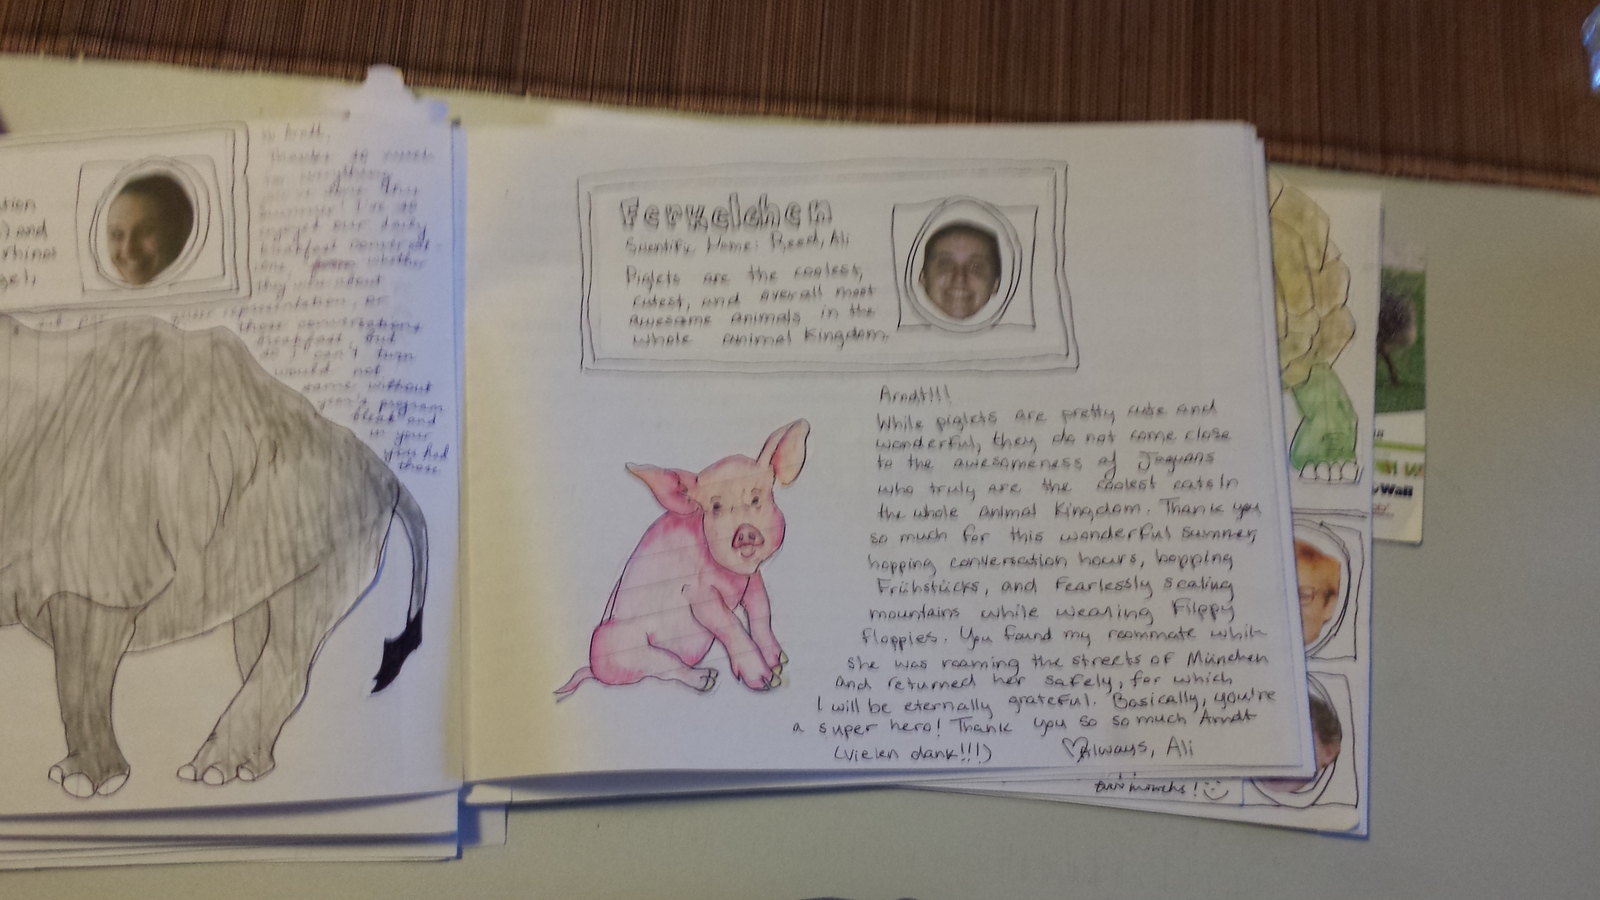 tion
) and
rhinos
gel,
Thanks so much
for everything
you've done this
summer! I've so
enjoyed our daily
breakfast conversat-
ions, whether
they were about
queer representation, or
those conversations
breakfast, but
so I can't turn
would not
same without
year's program
bleak and
in your
you had
those
Ferkelchen
Scientific Name: Reed, Ali
Piglets are the coolest,
cutest, and overall most
awesome animals in the
whole animal Kingdom.
Arndt!!!
While piglets are pretty cute and
wonderful, they do not come close
to the awesomeness of Jaguars
who truly are the coolest cats in
the whole animal Kingdom. Thank you
so much for this wonderful summer,
hopping conversation hours, bopping
Frühstücks, and fearlessly scaling
mountains while wearing Flippy
Floppies. You found my roommate while
she was roaming the streets of München
and returned her safely, for which
I will be eternally grateful. Basically, you're
a super hero! Thank you so so much Arndt
(vielen dank!!!)
♡Always, Ali
Wall
months! ☺